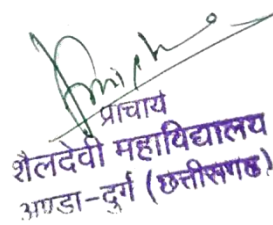 प्राचार्य
शैलदेवी महाविद्यालय
अण्डा-दुर्ग (छत्तीसगढ़)